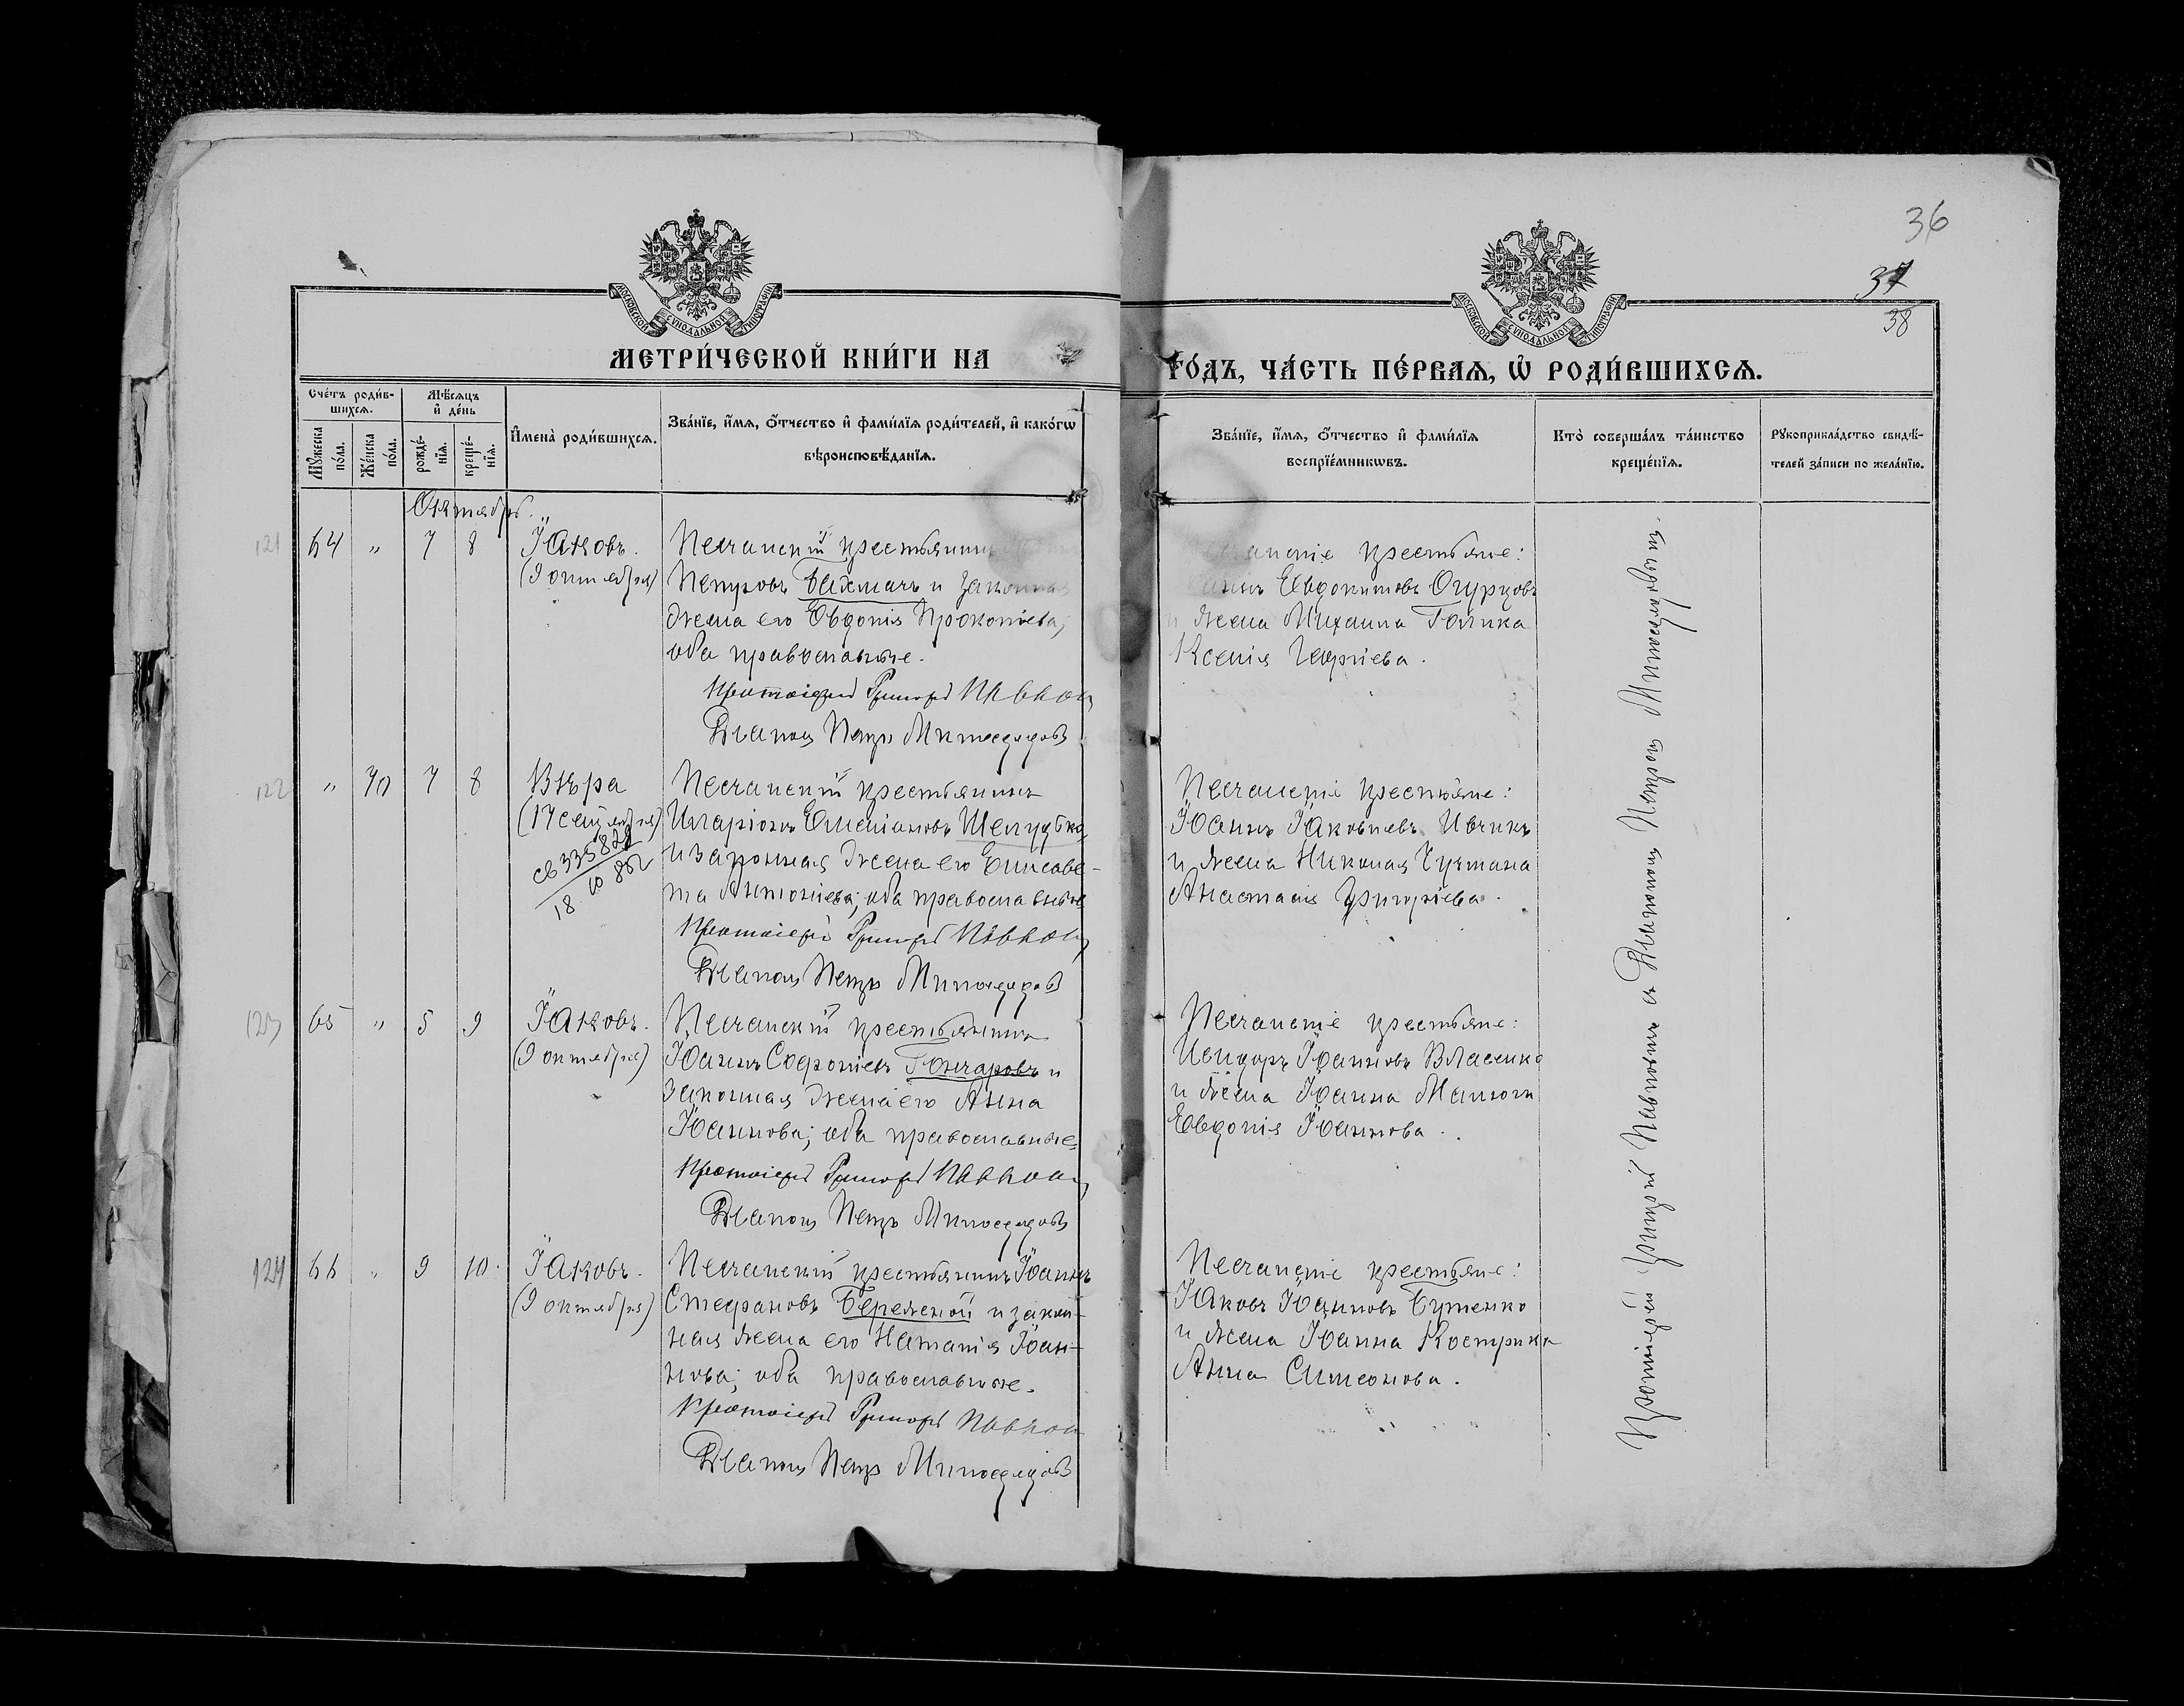 36
37
38
МОСКОВСКОЙ СУНОДАЛЬНОЙ ТИПОГРАФІИ
МОСКОВСКОЙ СУНОДАЛЬНОЙ ТИПОГРАФІИ
МЕТРИ́ЧЕСКОЙ КНИ́ГИ НА
ГО́ДЪ, ЧА́СТЬ ПЕ́РВАЯ, Ѡ҆ РОДИ́ВШИХСЯ.
Сче́тъ роди́в-
шихся.
Мѣ́сяцъ
и҆ де́нь
Мꙋ́жеска
по́ла.
Же́нска
по́ла.
рожде́-
нїя.
креще́-
нїя.
И҆мена̀ роди́вшихся.
Зва́нїе, и҆́мя, ѻ҆́тчество и҆ фами́лїя роди́телей, и҆ како́гѡ
вѣроисповѣ́данїя.
Зва́нїе, и҆́мя, ѻ҆́тчество и҆ фами́лїя
воспрїе́мникѡвъ.
Кто̀ соверша́лъ та́инство
креще́нїя.
Рꙋкоприкла́дство свидѣ́-
телей за́писи по жела́нїю.
Октябрь.
121 64 " 7 8 Іаковъ.
(9 октября)
Песчанскій крестьянинъ
Петровъ Бахмачъ и законная
жена его Евдокія Прокопіева,
оба православные.
Протоіерей Григорій Павловъ
Діаконъ Петръ Милосердовъ
крестьяне:
Евдокимовъ Огурцовъ
и жена Михаила Голика
Ксенія Георгіева.
122 " 70 7 8 Вѣра
(17 сентября)
св 335828
18 10 882
Песчанскій крестьянинъ
Иларіонъ Емеліановъ Шелудько
и законная жена его Елисаве-
та Антоніева; оба православные
Протоіерей Григорій Павловъ
Діаконъ Петръ Милосердовъ
Песчанскіе крестьяне:
Іоаннъ Іаковлевъ Ивчикъ
и жена Николая
Анастасія Григоріева.
123 65 " 5 9 Іаковъ.
(9 октября)
Песчанскій крестьянинъ
Іоаннъ Софоніевъ Гончаровъ и
законная жена его Анна
Іоаннова; оба православные.
Протоіерей Григорій Павловъ
Діаконъ Петръ Милосердовъ
Песчанскіе крестьяне:
Исидоръ Іоанновъ Власенко
и жена Іоанна
Евдокія Іоаннова.
124 66 " 9 10. Іаковъ.
(9 октября)
Песчанскій крестьянинъ Іоаннъ
Стефановъ Бережной и закон-
ная жена его Наталія Іоан-
нова; оба православные.
Протоіерей Григорій Павловъ
Діаконъ Петръ Милосердовъ
Песчанскіе крестьяне:
Іаковъ Іоанновъ Бутенко
и жена Іоанна Кострика
Анна Симеонова.
Протоіерей Григорій Павловъ съ Діакономъ Петромъ Милосердовымъ.